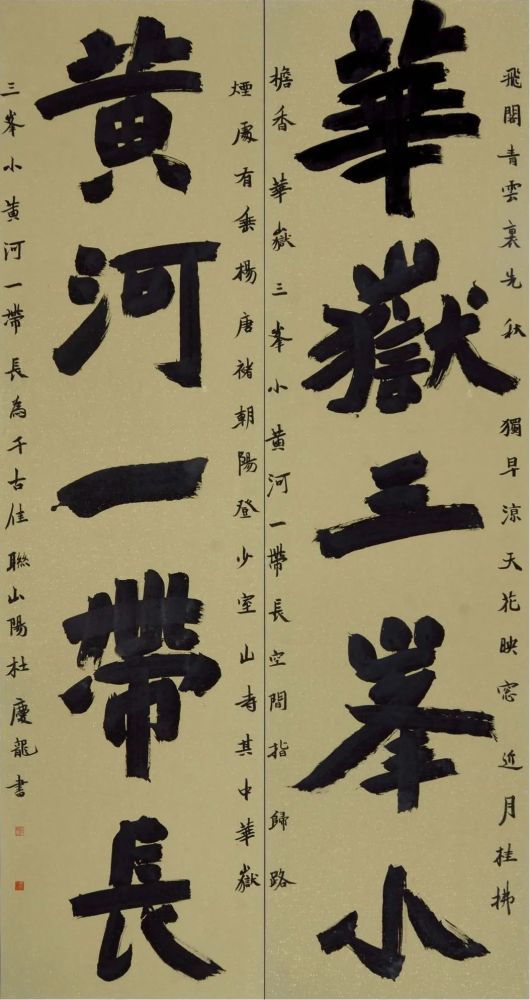 飛閣青雲裏先秋獨早涼天花映窓近月桂拂
華嶽三峯小
檐香華嶽三峯小黄河一帶長空間指歸路
煙處有垂楊唐褚朝陽登少室山寺其中華嶽
黄河一帶長
三峯小黄河一帶長為千古佳聯山陽杜慶龍書